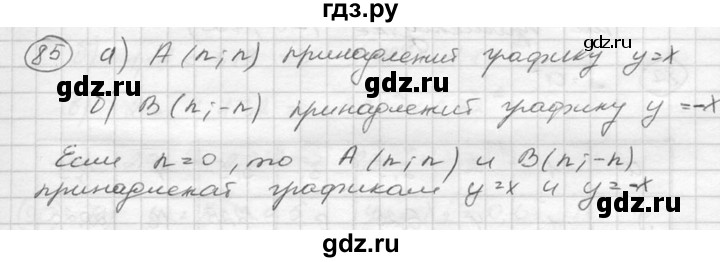 гдз.ру
85 а) A(n; n) принадлежит графику y=x
б) B(n; -n) принадлежит графику y=-x
Если n=0, то A(n; n) и B(n; -n)
принадлежат графикам y=x и y=-x
gdz.ru gdz.ru
gdz.ru gdz.ru
gdz.ru gdz.ru